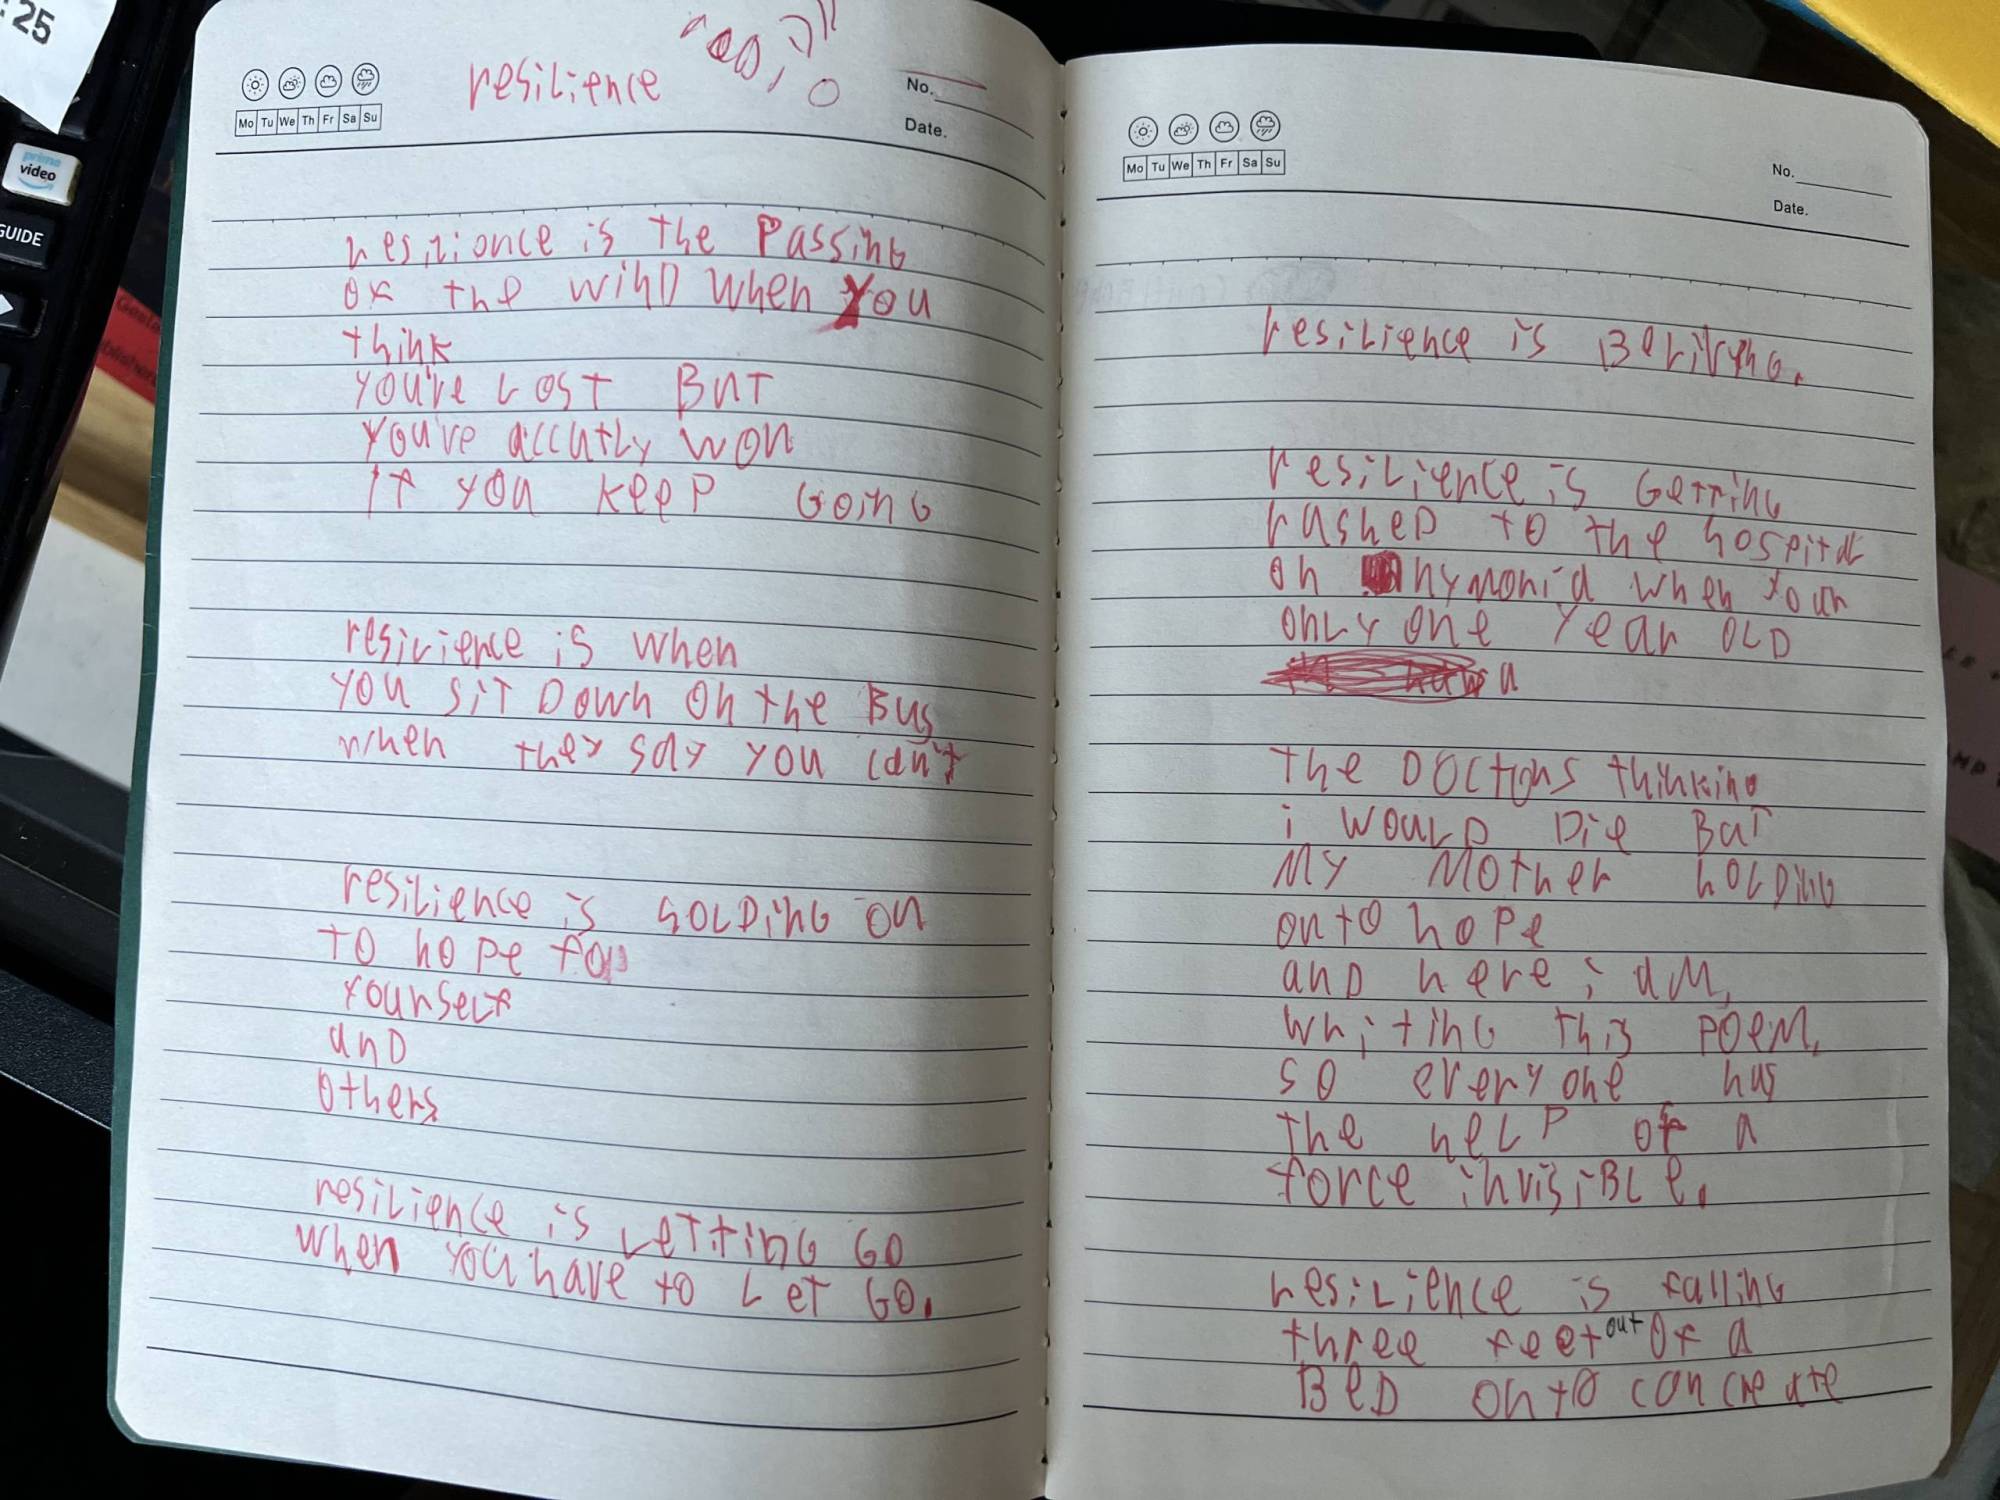 :25
prime video
GUIDE
resilience
No.
Date.
Mo Tu We Th Fr Sa Su
resilionce is the Passing
of the winD when You
think
you're Lost But
you've accutly won
if you keep Going
resilience is when
you sit Down on the Bus
when they say you can't
resilience is golDing on
to hope for
yourself
anD
others
resilience is LeTTinG Go
when you have to Let Go.
Mo Tu We Th Fr Sa Su
No.
Date.
resilience is
resilience is GeTTing
rusheD to the hospital
on nymonia when your
onLy one Year OLD
the DOCtors thinking
i WouLD Die BuT
My Mother hoLDing
onto hope
anD here i aM,
writinG this POEM,
so everyone has
the heLP of a
force invisiBLe.
resiLience is falling
three feet out Of a
BeD onto concreate